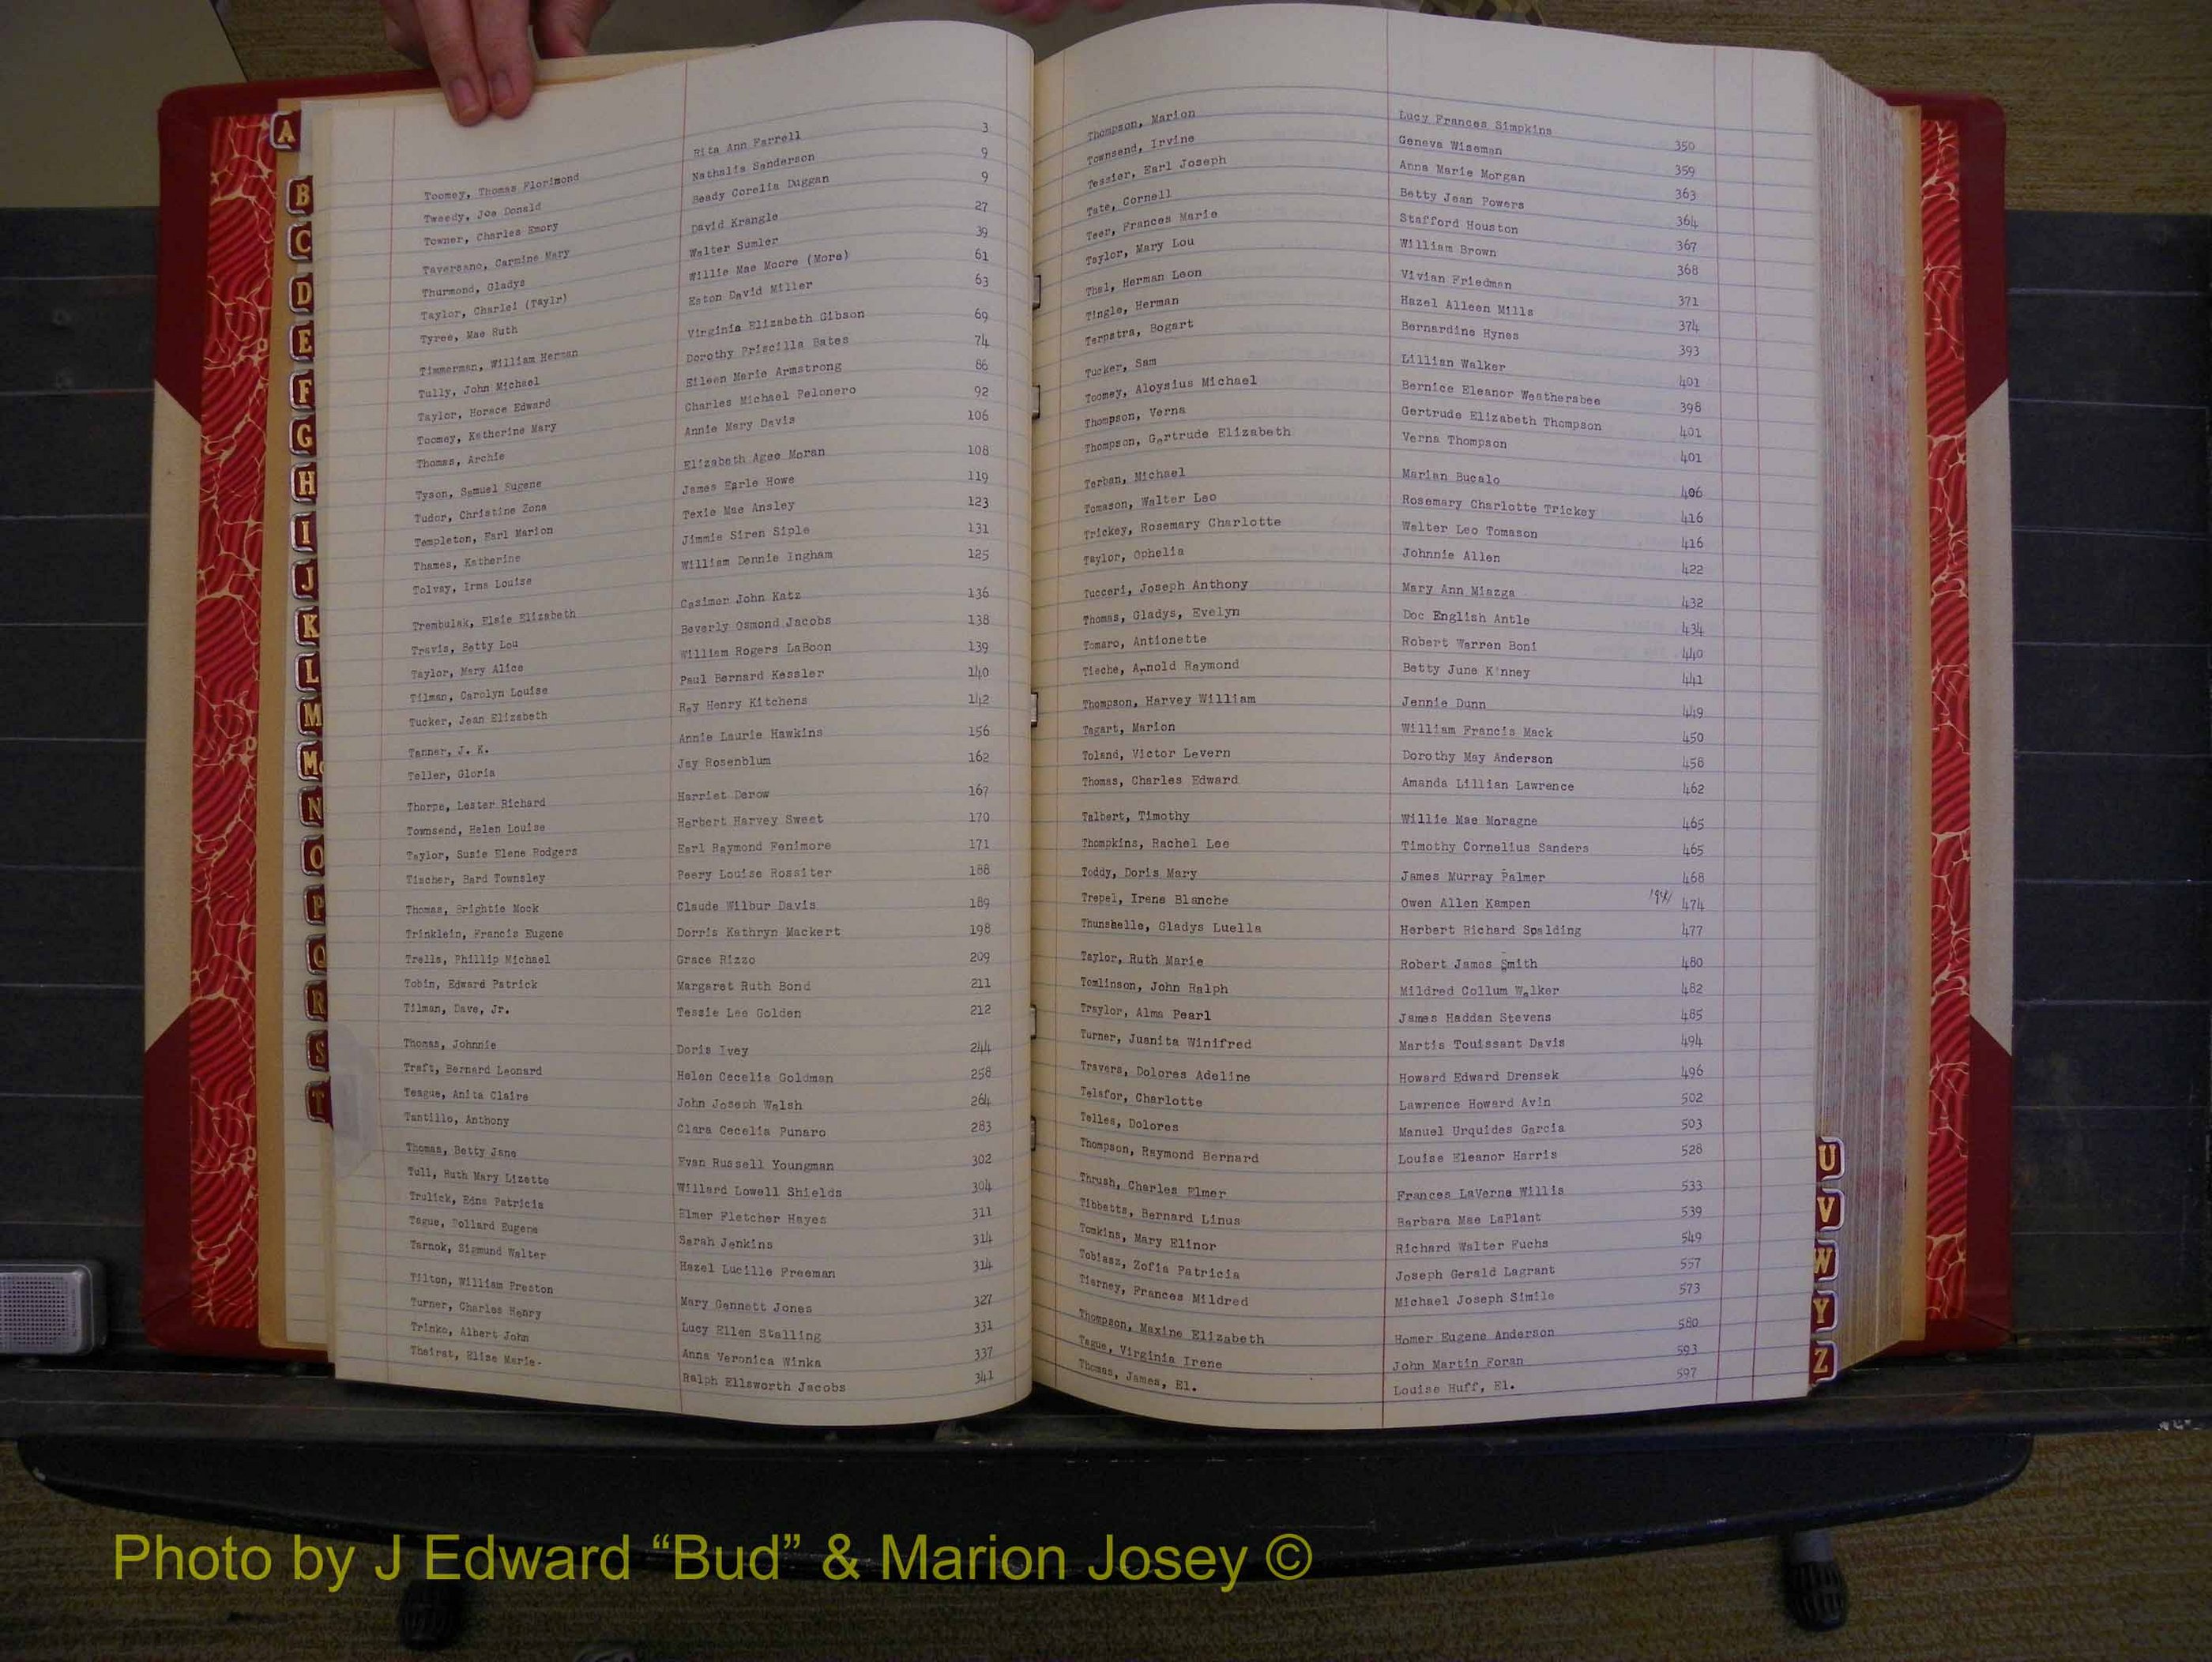 A
B
C
D
E
F
G
H
I
J
K
L
M
Mc
N
O
P
Q
R
S
T
Toomey, Thomas Florimond Rita Ann Farrell 3
Tweedy, Joe Donald Nathalie Sanderson 9
Towner, Charles Emory Beady Corelia Duggan 9
Taversano, Carmine Mary David Krangle 27
Thurmond, Gladys Walter Sumler 39
Taylor, Charlei (Taylr) Willie Mae Moore (More) 61
Tyree, Mae Ruth Eston David Miller 63
Timmerman, William Herman Virginia Elizabeth Gibson 69
Tully, John Michael Dorothy Priscilla Bates 74
Taylor, Horace Edward Eileen Marie Armstrong 86
Toomey, Katherine Mary Charles Michael Pelonero 92
Thomas, Archie Annie Mary Davis 106
Tyson, Samuel Eugene Elizabeth Agee Moran 108
Tudor, Christine Zona James Earle Howe 119
Templeton, Earl Marion Texie Mae Ansley 123
Thames, Katherine Jimmie Siren Siple 131
Tolvay, Irma Louise William Dennie Ingham 125
Trembulak, Elsie Elizabeth Casimer John Katz 136
Travis, Betty Lou Beverly Osmond Jacobs 138
Taylor, Mary Alice William Rogers LaBoon 139
Tilman, Carolyn Louise Paul Bernard Kessler 140
Tucker, Jean Elizabeth Ray Henry Kitchens 142
Tanner, J. K. Annie Laurie Hawkins 156
Teller, Gloria Jay Rosenblum 162
Thorpe, Lester Richard Harriet Derow 167
Townsend, Helen Louise Herbert Harvey Sweet 170
Taylor, Susie Elene Rodgers Earl Raymond Fenimore 171
Tischer, Bard Townsley Peery Louise Rossiter 188
Thomas, Brightie Mock Claude Wilbur Davis 189
Trinklein, Francis Eugene Dorris Kathryn Mackert 198
Trells, Phillip Michael Grace Rizzo 209
Tobin, Edward Patrick Margaret Ruth Bond 211
Tilman, Dave, Jr. Tessie Lee Golden 212
Thomas, Johnnie Doris Ivey 244
Traft, Bernard Leonard Helen Cecelia Goldman 258
Teague, Anita Claire John Joseph Walsh 264
Tantillo, Anthony Clara Cecelia Punaro 283
Thomas, Betty Jane Evan Russell Youngman 302
Tull, Ruth Mary Lizette Willard Lowell Shields 304
Trulick, Edna Patricia Elmer Fletcher Hayes 311
Tague, Pollard Eugene Sarah Jenkins 314
Tarnok, Sigmund Walter Hazel Lucille Freeman 314
Tilton, William Preston Mary Gennett Jones 327
Turner, Charles Henry Lucy Ellen Stalling 331
Trinko, Albert John Anna Veronica Winka 337
Theirst, Elise Marie- Ralph Ellsworth Jacobs 341
Thompson, Marion Lucy Frances Simpkins 350
Townsend, Irvine Geneva Wiseman 359
Tessier, Earl Joseph Anna Marie Morgan 363
Tate, Cornell Betty Jean Powers 364
Teer, Frances Marie Stafford Houston 367
Taylor, Mary Lou William Brown 368
Thal, Herman Leon Vivian Friedman 371
Tingle, Herman Hazel Alleen Mills 374
Terpstra, Bogart Bernardine Hynes 393
Tucker, Sam Lillian Walker 401
Toomey, Aloysius Michael Bernice Eleanor Weathersbee 398
Thompson, Verna Gertrude Elizabeth Thompson 401
Thompson, Gertrude Elizabeth Verna Thompson 401
Terban, Michael Marian Bucalo 406
Tomason, Walter Leo Rosemary Charlotte Trickey 416
Trickey, Rosemary Charlotte Walter Leo Tomason 416
Taylor, Ophelia Johnnie Allen 422
Tucceri, Joseph Anthony Mary Ann Miazga 432
Thomas, Gladys, Evelyn Doc English Antle 434
Tomaro, Antionette Robert Warren Boni 440
Tieche, Arnold Raymond Betty June K'nney 441
Thompson, Harvey William Jennie Dunn 449
Tagart, Marion William Francis Mack 450
Toland, Victor Levern Dorothy May Anderson 458
Thomas, Charles Edward Amanda Lillian Lawrence 462
Talbert, Timothy Willie Mae Moragne 465
Thompkins, Rachel Lee Timothy Cornelius Sanders 465
Toddy, Doris Mary James Murray Palmer 468
Trepel, Irene Blanche Owen Allen Kampen 1941 474
Thunshelle, Gladys Luella Herbert Richard Spalding 477
Taylor, Ruth Marie Robert James Smith 480
Tomlinson, John Ralph Mildred Collum Walker 482
Traylor, Alma Pearl James Haddan Stevens 485
Turner, Juanita Winifred Martis Touissant Davis 494
Travers, Dolores Adeline Howard Edward Drensek 496
Telafor, Charlotte Lawrence Howard Avin 502
Telles, Dolores Manuel Urquides Garcia 503
Thompson, Raymond Bernard Louise Eleanor Harris 528
Thrush, Charles Elmer Frances LaVerne Willis 533
Tibbetts, Bernard Linus Barbara Mae LaPlant 539
Tomkins, Mary Elinor Richard Walter Fuchs 549
Tobiasz, Zofia Patricia Joseph Gerald Lagrant 557
Tierney, Frances Mildred Michael Joseph Simile 573
Thompson, Maxine Elizabeth Homer Eugene Anderson 580
Tague, Virginia Irene John Martin Foran 593
Thomas, James, El. Louise Huff, El. 597
U
V
W
Y
Z
Photo by J Edward “Bud” & Marion Josey ©